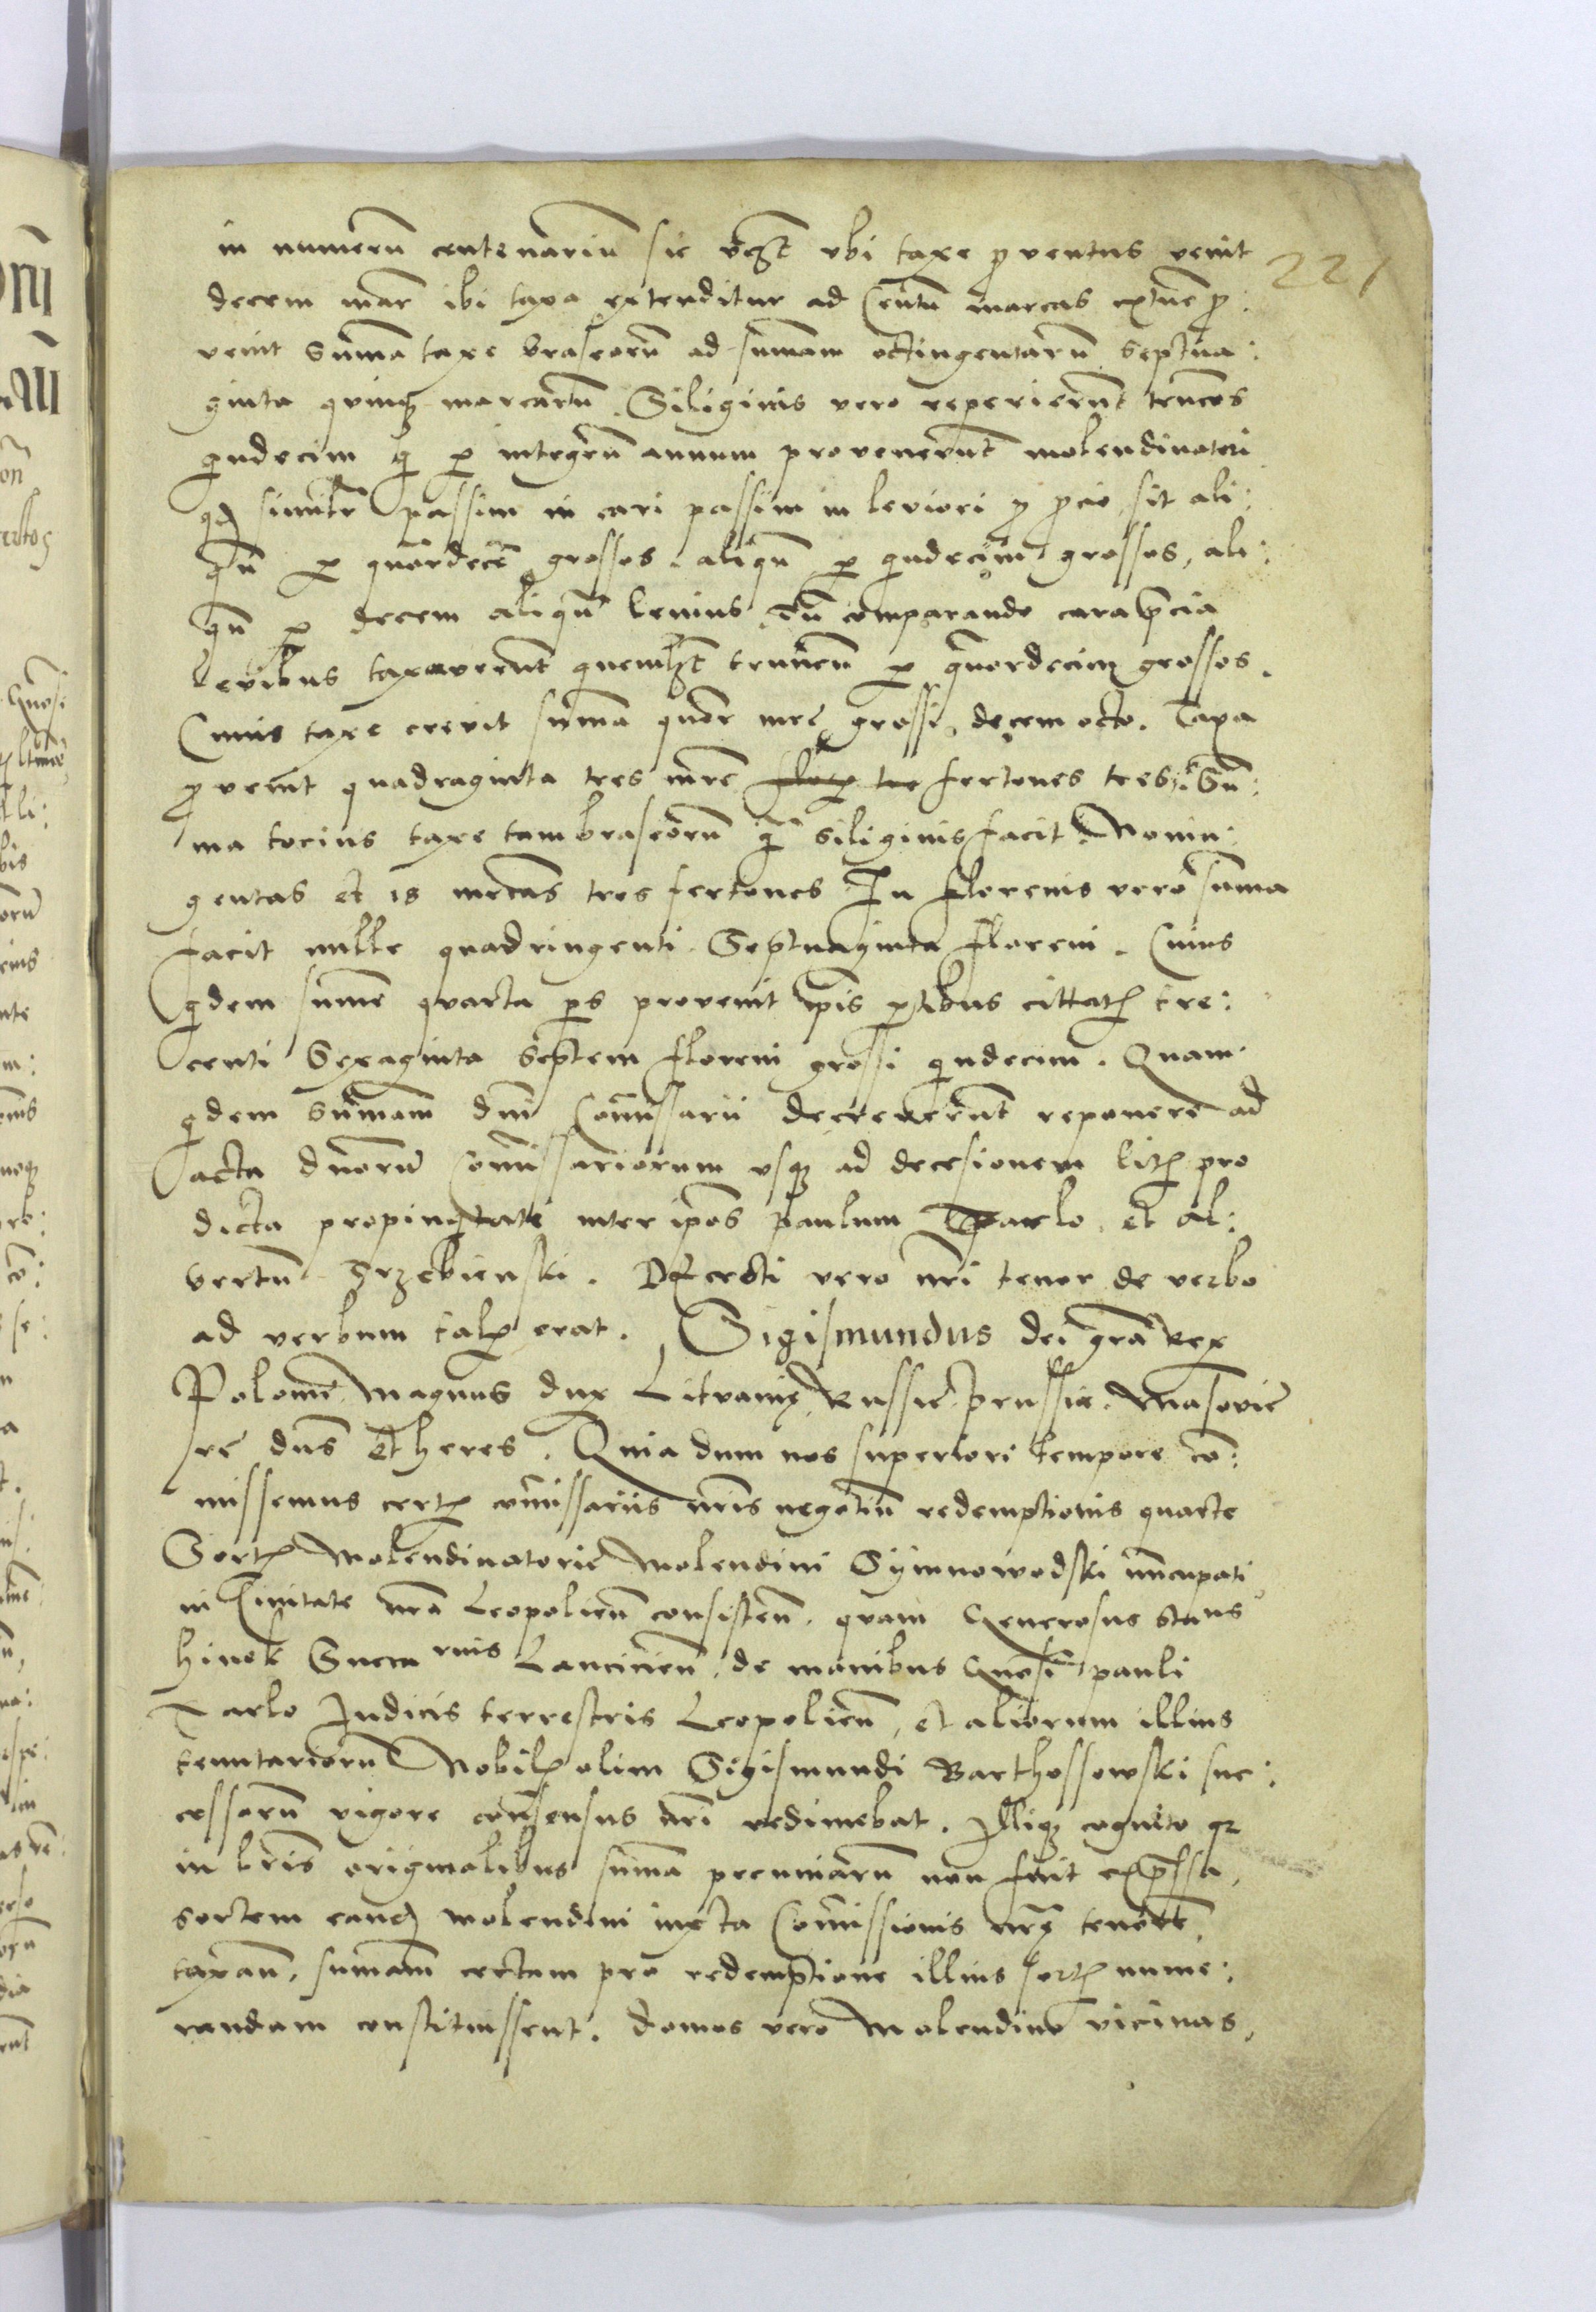 221
in numerũ centenariũ sic vꝫt vbi taxe ꝓventus venit
decem mar̃ ibi taxa extenditur ad Centũ marcas extũc ꝓ:
venit Sum̃a taxe braseorũ ad sum̃am octingentarũ septua:
ginta quinqꝫ marcarũ. Siliginis vero reperierũt trũcos
qindecim qi ꝑ integrũ annum provenerunt molendinatori
qd simil̃r passim in cari passim in leviori p̃cio sit ali:
qñ ꝑ quordecẽ grossos. aliqñ ꝑ qindecim grossos, ali:
qñ ꝑ decem aliqñ levius, cũ comparando cara p̃cia
levibus taxaverũt quemlꝫt truncũ ꝑ quordecim grossos.
Cuius taxe crevit sum̃a quor mrc̃ grossi decem octo. Taxa
ꝓvenit quadraginta tres mrc̃ fertones tres. Sũ:
ma tocius taxe tam braseorũ q̃ siliginis facit Nonin:
gentas et 18 mrcas tres fertones In florenis vero sum̃a
facit mille quadringenti Septuaginta floreni. Cuius
qdem sum̃e quarta ps provenit ip̃is ꝑtibus cittatꝭ tre:
centi Sexaginta septem floreni grossi qindecim. Quam
qdem sum̃am dñi Com̃issarii decreverũt reponere ad
acta dñorũ Com̃issariorum vsqꝫ ad decesionem litꝭ pro
dicta propinqtate inter ip̃os paulum Tarlo et Al:
bertũ Grzebienski. Decreti vero nr̃i tenor de verbo
ad verbum talꝭ erat. Sigismundus dei grã Rex
Poloniẽ Magnus dux Litvanię Russie prussie. Masoviẽ
rẽ dñs et heres. Quia dum nos superiori tempore cõ:
missemus certꝭ com̃issariis nr̃is negotiũ redemptionis quarte
Sortꝭ Molendinatorie Molendini Symnowodski nũcupati
in Civitate nr̃a Leopolieñ consisteñ. quam Generosus Stans
hinek Succa vnis Lancicieñ. de manibus Gnosi pauli
Tarlo Judicis terrestris Leopolieñ, et aliorum illius
tenutariorũ Nobilꝭ olim Sigismundi Barthossowski suc:
cessorũ vigore consensus nr̃i redimebat. Illiqꝫ cognito qꝛ
in lr̃is originalibus sum̃a pecuniarũ non fuit exp̃ssa,
sortem eandꝭ molendini iuxta Com̃issionis nr̃ę tenorẽ
taxañ. sum̃am certam pro redemptione illius sortꝭ nume:
randam constituissent. domos vero Molendino vicinas,